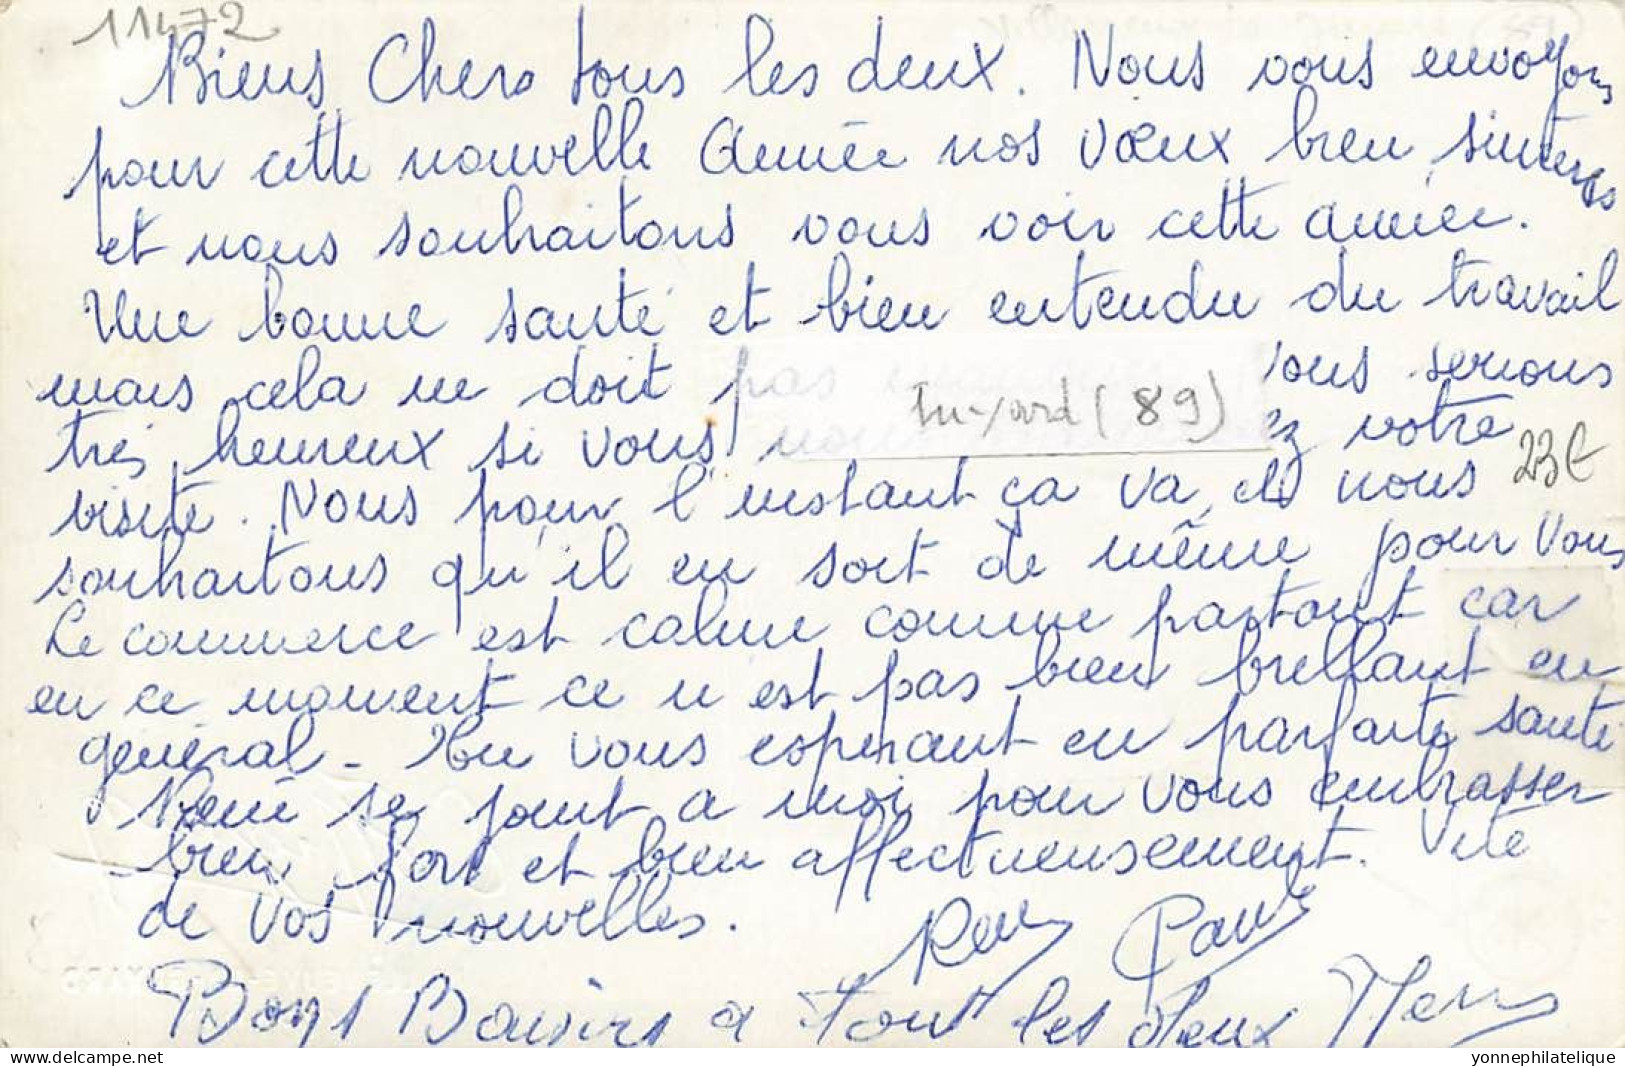 11472
Biens Chers tous les deux. Nous vous envoyons
pour cette nouvelle Année nos vœux bien sincères
et nous souhaitons vous voir cette année.
Une bonne santé et bien entendu du travail
mais cela ne doit pas nous serions
(89)
très heureux si vous votre
23€
visite. Nous pour l'instant ça va, et nous
souhaitons qu'il en soit de même pour vous
Le commerce est calme comme partout car
en ce moment ce n'est pas bien brillant en
général - En vous espérant en parfaite santé
René se joint a moi pour vous embrasser
bien fort et bien affectueusement. Vite
de vos nouvelles.
Bons Baisirs a tout les deux
yonnephilatelique
delcampe.net